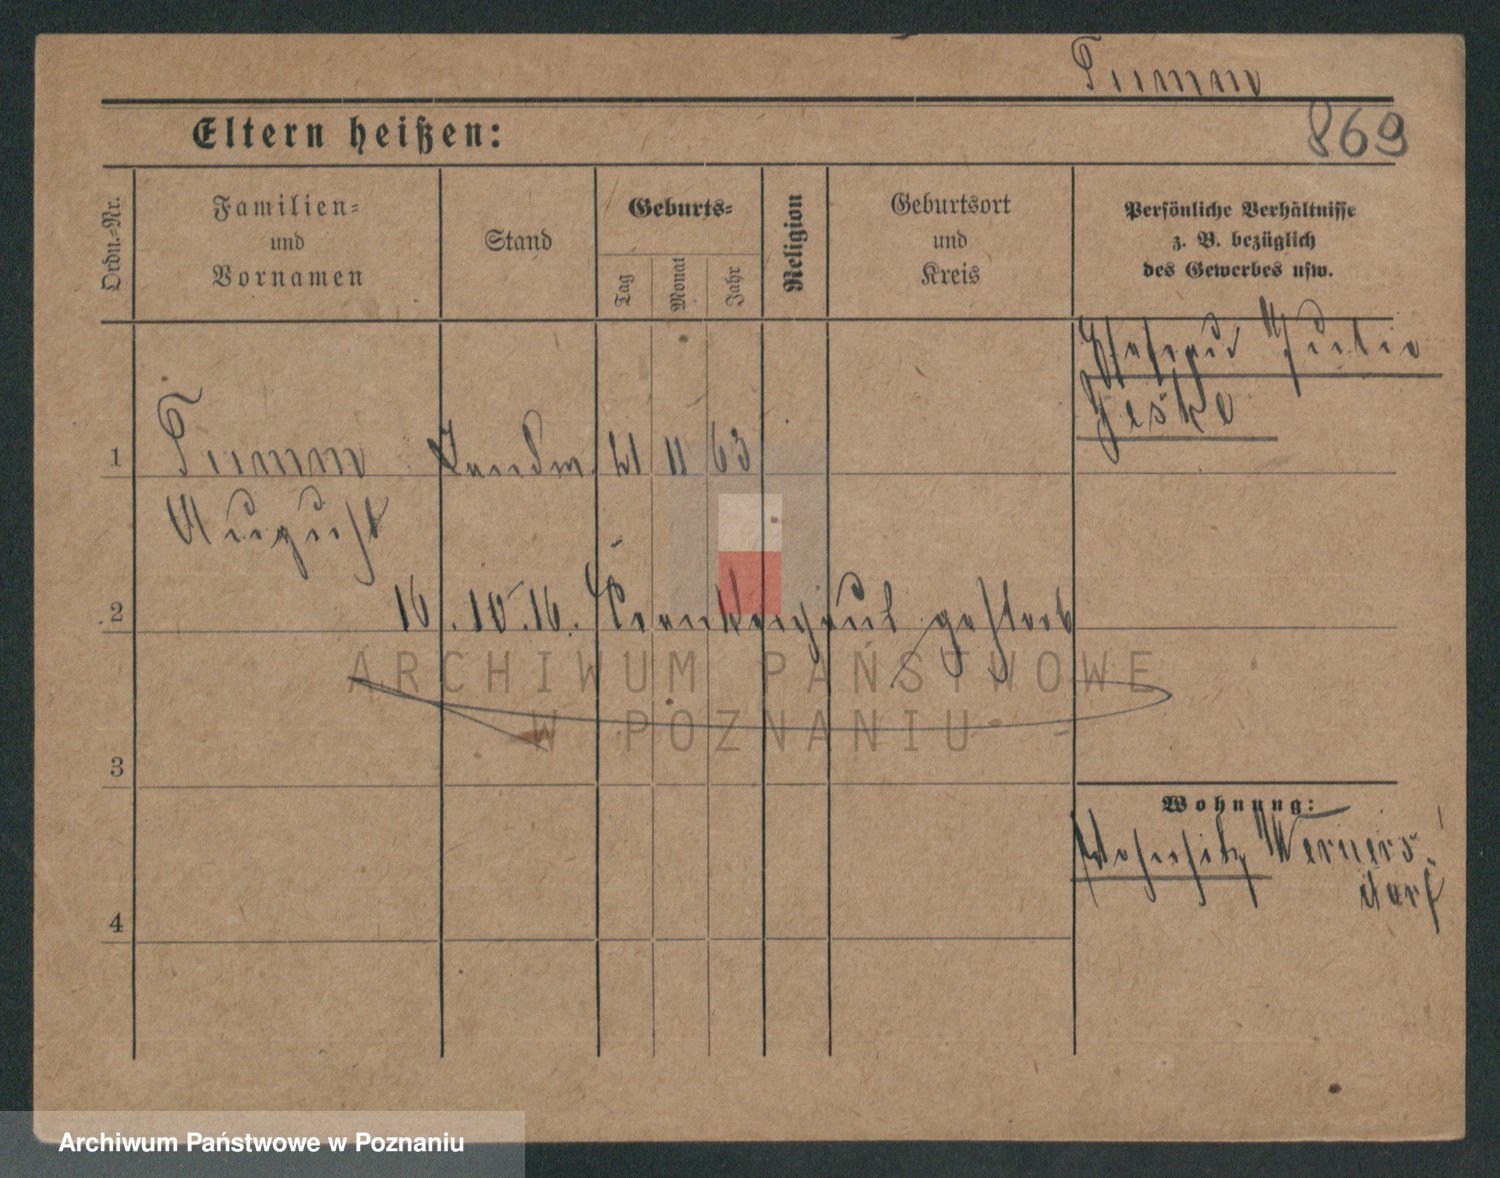 Timm
869
Eltern heißen:
Ordn.-Nr.
Familien-
und
Vornamen
Stand
Geburts-
Tag
Monat
Jahr
Religion
Geburtsort
und
Kreis
Persönliche Verhältnisse
z. B. bezüglich
des Gewerbes usw.
Ehefrau
Jeske
1
Timm
Landw. 21 11 63
August
2
16.10.16. Krankenhaus gestorb
ARCHIWUM PAŃSTWOWE
W POZNANIU
3
Wohnung:
Wohnsitz Werners-
dorf
4
Archiwum Państwowe w Poznaniu